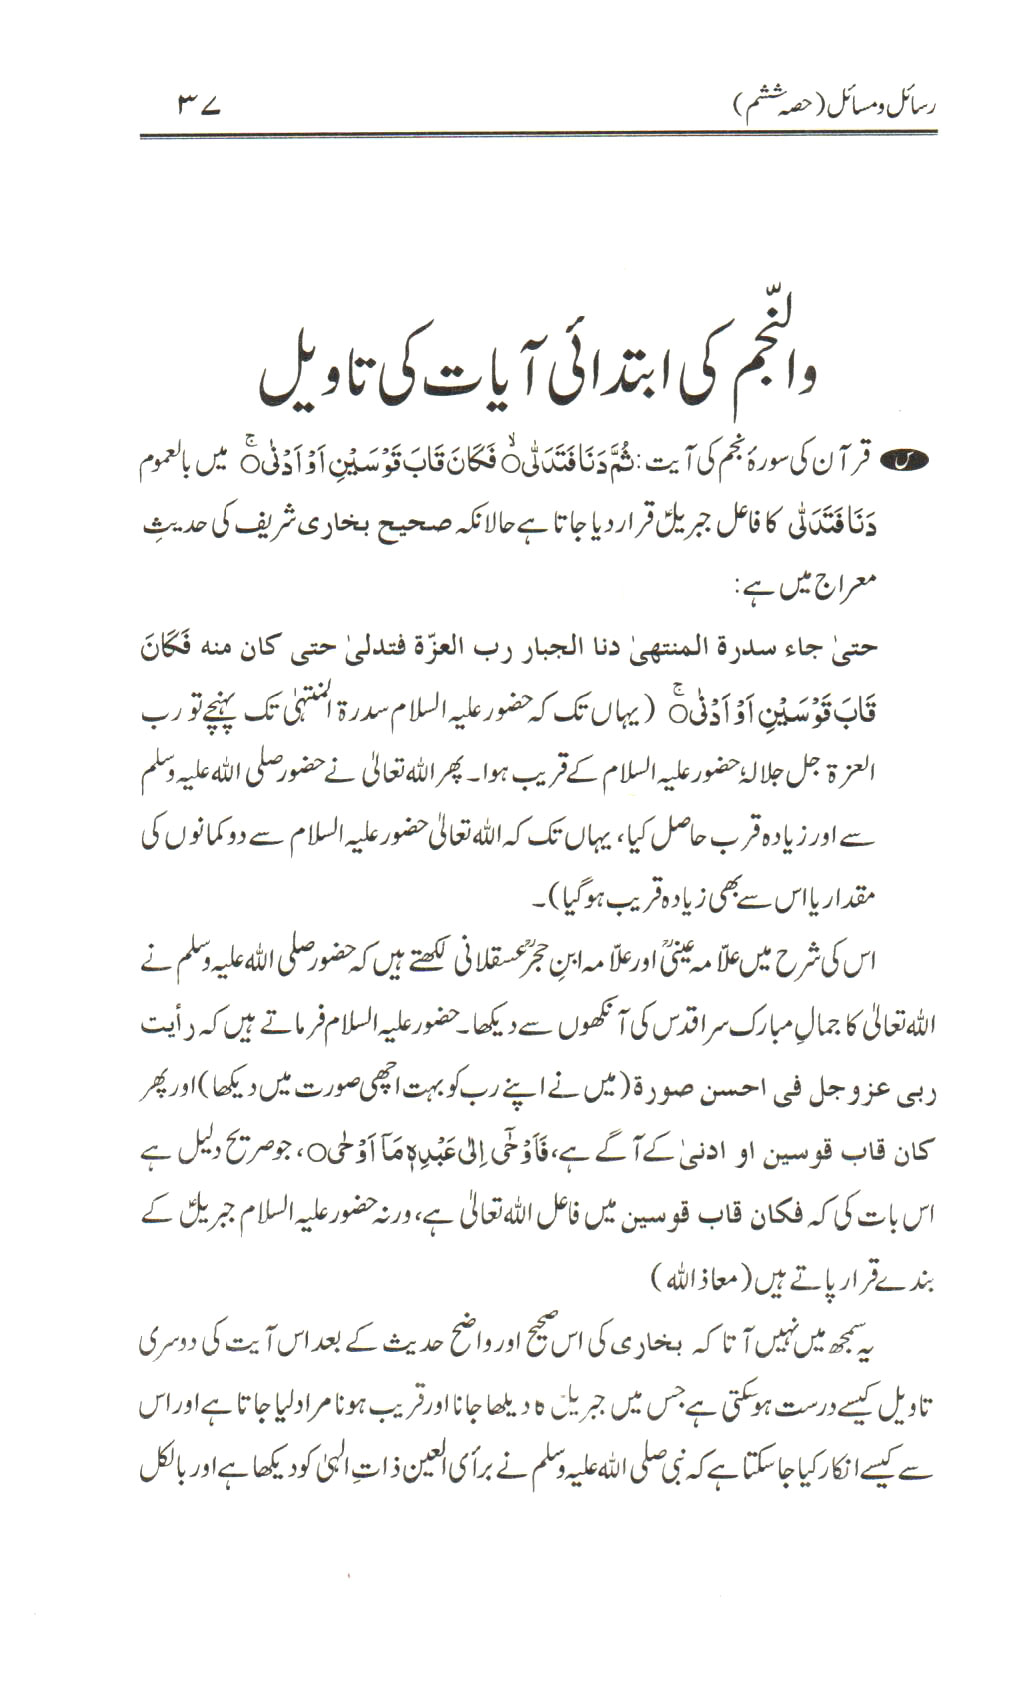 رسائل و مسائل (حصہ ششم) ۳۷
والنّجم کی ابتدائی آیات کی تاویل
س قرآن کی سورۂ نجم کی آیت: ثُمَّ دَنَا فَتَدَلّٰی○ۙ فَکَانَ قَابَ قَوْسَیْنِ اَوْ اَدْنٰی○ۚ میں بالعموم
دَنَا فَتَدَلّٰی کا فاعل جبریلؑ قرار دیا جاتا ہے حالانکہ صحیح بخاری شریف کی حدیثِ
معراج میں ہے:
حتیٰ جاء سدرة المنتھیٰ دنا الجبار رب العزّة فتدلیٰ حتی کان منه فَکَانَ
قَابَ قَوْسَیْنِ اَوْ اَدْنٰی○ۚ (یہاں تک کہ حضور علیہ السلام سدرۃ المنتہیٰ تک پہنچے تو رب
العزۃ جل جلالہٗ حضور علیہ السلام کے قریب ہوا۔ پھر اللہ تعالیٰ نے حضور صلی اللہ علیہ وسلم
سے اور زیادہ قرب حاصل کیا، یہاں تک کہ اللہ تعالیٰ حضور علیہ السلام سے دو کمانوں کی
مقدار یا اس سے بھی زیادہ قریب ہوگیا)۔
اس کی شرح میں علّامہ عینیؒ اور علّامہ ابنِ حجرؒ عسقلانی لکھتے ہیں کہ حضور صلی اللہ علیہ وسلم نے
اللہ تعالیٰ کا جمالِ مبارک سر اقدس کی آنکھوں سے دیکھا۔ حضور علیہ السلام فرماتے ہیں کہ رأیت
ربی عزوجل فی احسن صورة (میں نے اپنے رب کو بہت اچھی صورت میں دیکھا) اور پھر
کان قاب قوسین او ادنیٰ کے آگے ہے، فَاَوْحٰۤی اِلٰی عَبْدِہٖ مَاۤ اَوْحٰی○، جو صریح دلیل ہے
اس بات کی کہ فکان قاب قوسین میں فاعل اللہ تعالیٰ ہے، ورنہ حضور علیہ السلام جبریلؑ کے
بندے قرار پاتے ہیں (معاذ اللہ)
یہ سمجھ میں نہیں آتا کہ بخاری کی اس صحیح اور واضح حدیث کے بعد اس آیت کی دوسری
تاویل کیسے درست ہوسکتی ہے جس میں جبریلؑ کا دیکھا جانا اور قریب ہونا مراد لیا جاتا ہے اور اس
سے کیسے انکار کیا جاسکتا ہے کہ نبی صلی اللہ علیہ وسلم نے برأی العین ذاتِ الٰہی کو دیکھا ہے اور بالکل